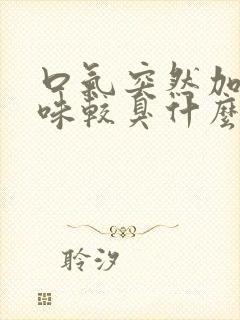 口氣突然加
味較臭什麼
聆汐